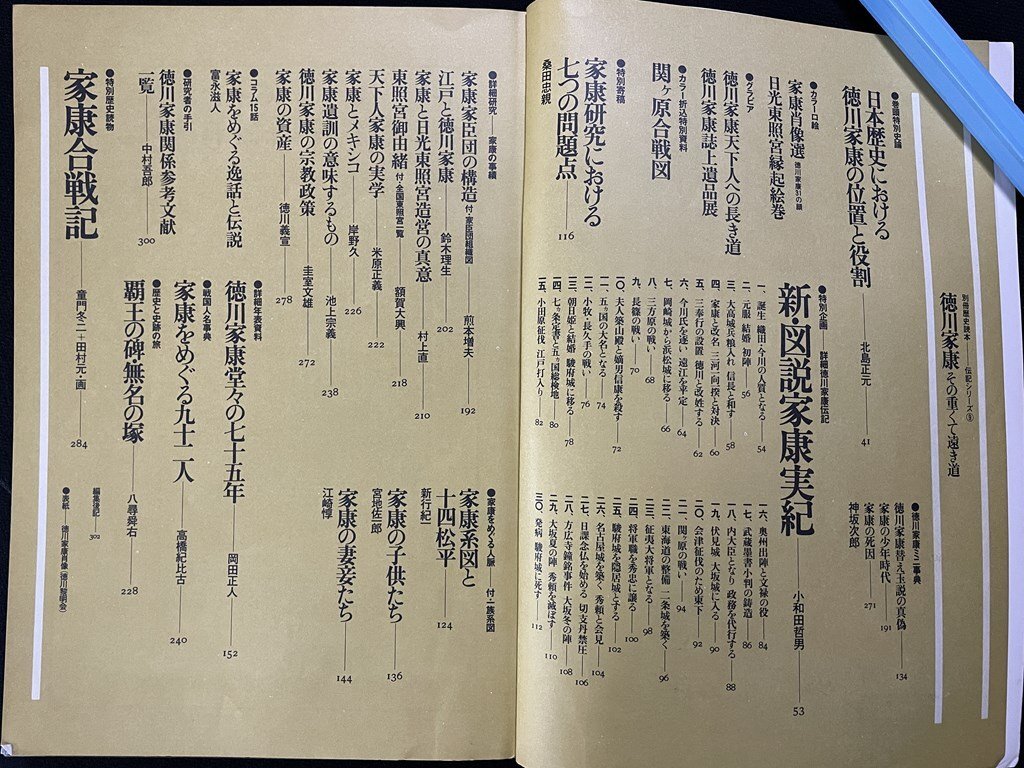 別冊歴史読本 伝記シリーズ⑨
徳川家康 その重くて遠き道
●巻頭特別史論
日本歴史における
徳川家康の位置と役割
北島正元
41
●カラー口絵
家康肖像選 徳川家康31の顔
日光東照宮縁起絵巻
●グラビア
徳川家康天下人への長き道
徳川家康誌上遺品展
●カラー折込特別資料
関ヶ原合戦図
●特別寄稿
家康研究における
七つの問題点
116
桑田忠親
●徳川家康ミニ事典
徳川家康替え玉説の真偽 134
家康の少年時代 191
家康の死因 271
神坂次郎
●特別企画 詳細徳川家康伝記
新・図説家康実紀
小和田哲男
53
一、誕生 織田・今川の人質となる 54
二、元服 結婚 初陣 56
三、大高城兵粮入れ 信長と和す 58
四、家康と改名 三河一向一揆と対決 60
五、三奉行の設置 徳川と改姓する 62
六、今川氏を逐い 遠江を平定 64
七、岡崎城から浜松城に移る 66
八、三方原の戦い 68
九、長篠の戦い 70
一〇、夫人築山殿と嫡男信康を殺す 72
一一、五ヵ国の大名となる 74
一二、小牧・長久手の戦い 76
一三、朝日姫と結婚 駿府城に移る 78
一四、七ヵ条定書と五ヵ国総検地 80
一五、小田原征伐 江戸打入り 82
一六、奥州出陣と文禄の役 84
一七、武蔵墨書小判の鋳造 86
一八、内大臣となり 政務を代行する 88
一九、伏見城 大坂城に入る 90
二〇、会津征伐のため東下 92
二一、関ヶ原の戦い 94
二二、東海道の整備 二条城を築く 96
二三、征夷大将軍となる 98
二四、将軍職を秀忠に譲る 100
二五、駿府城を隠居城とする 102
二六、名古屋城を築く 秀頼と会見 104
二七、日課念仏を始める 切支丹禁圧 106
二八、方広寺鐘銘事件 大坂冬の陣 108
二九、大坂夏の陣 秀頼を滅ぼす 110
三〇、発病 駿府城に死す 112
●詳細研究 家康の事績
家康家臣団の構造 付・家臣団組織図 煎本増夫 192
江戸と徳川家康 鈴木理生 202
家康と日光東照宮造営の真意 村上直 210
東照宮御由緒 付・全国東照宮一覧 額賀大興 218
天下人家康の実学 米原正義 222
家康とメキシコ 岸野久 226
家康遺訓の意味するもの 池上宗義 238
徳川家康の宗教政策 圭室文雄 272
家康の資産 徳川義宣 278
●コラム15話
家康をめぐる逸話と伝説
富永滋人
●研究者の手引
徳川家康関係参考文献
一覧 中村吾郎 300
●特別歴史読物
家康合戦記
童門冬二+田村元・画 284
●家康をめぐる人脈 付・一族系図
家康系図と
十四松平 124
新行紀一
家康の子供たち 136
宮地佐一郎
家康の妻妾たち 144
江崎惇
●詳細年表資料
徳川家康堂々の七十五年 岡田正人 152
●戦国人名事典
家康をめぐる九十二人 高橋紀比古 240
●歴史と史跡の旅
覇王の碑・無名の塚 八尋舜右 228
編集後記 302
●表紙 徳川家康肖像（徳川黎明会）